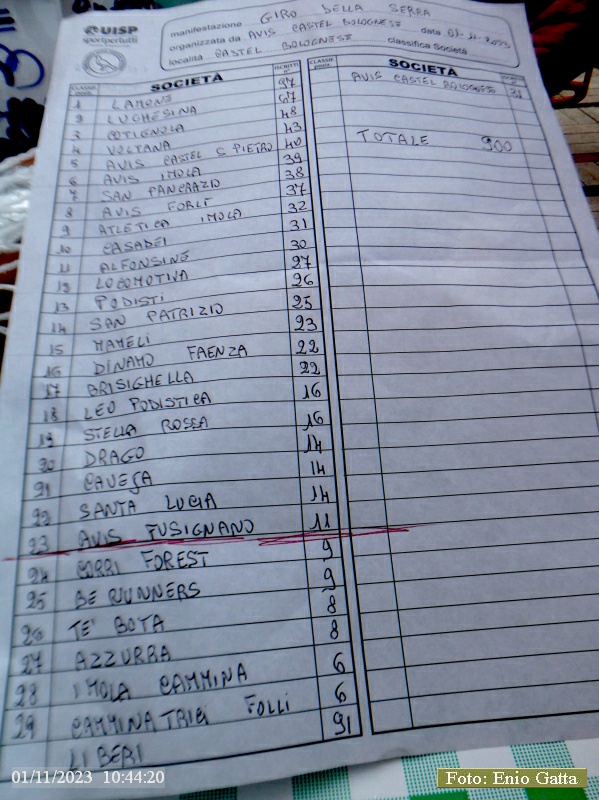 UISP
sportpertutti
manifestazione GIRO DELLA SERRA
organizzata da AVIS CASTEL BOLOGNESE data 01-11-2023
località CASTEL BOLOGNESE classifica Società
CLASSIF. SOCIETÀ ISCRITTI n°
1 LAMONE 97
2 LUGHESINA 67
3 COTIGNOLA 48
4 VOLTANA 43
5 AVIS CASTEL S PIETRO 40
6 AVIS IMOLA 39
7 SAN PANCRAZIO 38
8 AVIS FORLÌ 37
9 ATLETICA IMOLA 32
10 CASADEI 31
11 ALFONSINE 30
12 LOCOMOTIVA 27
13 PODISTI 26
14 SAN PATRIZIO 25
15 MAMELI 23
16 DINAMO FAENZA 22
17 BRISIGHELLA 22
18 LEO PODISTICA 16
19 STELLA ROSSA 16
20 DRAGO 14
21 CAVEJA 14
22 SANTA LUCIA 14
23 AVIS FUSIGNANO 11
24 CORRI FOREST 9
25 BE RUNNERS 9
26 TE' BOTA 8
27 AZZURRA 8
28 IMOLA CAMMINA 6
29 CAMMINATRICI FOLLI 6
LIBERI 91
CLASSIF. SOCIETÀ
AVIS CASTEL BOLOGNESE
TOTALE 900
01/11/2023 10:44:20
Foto: Enio Gatta